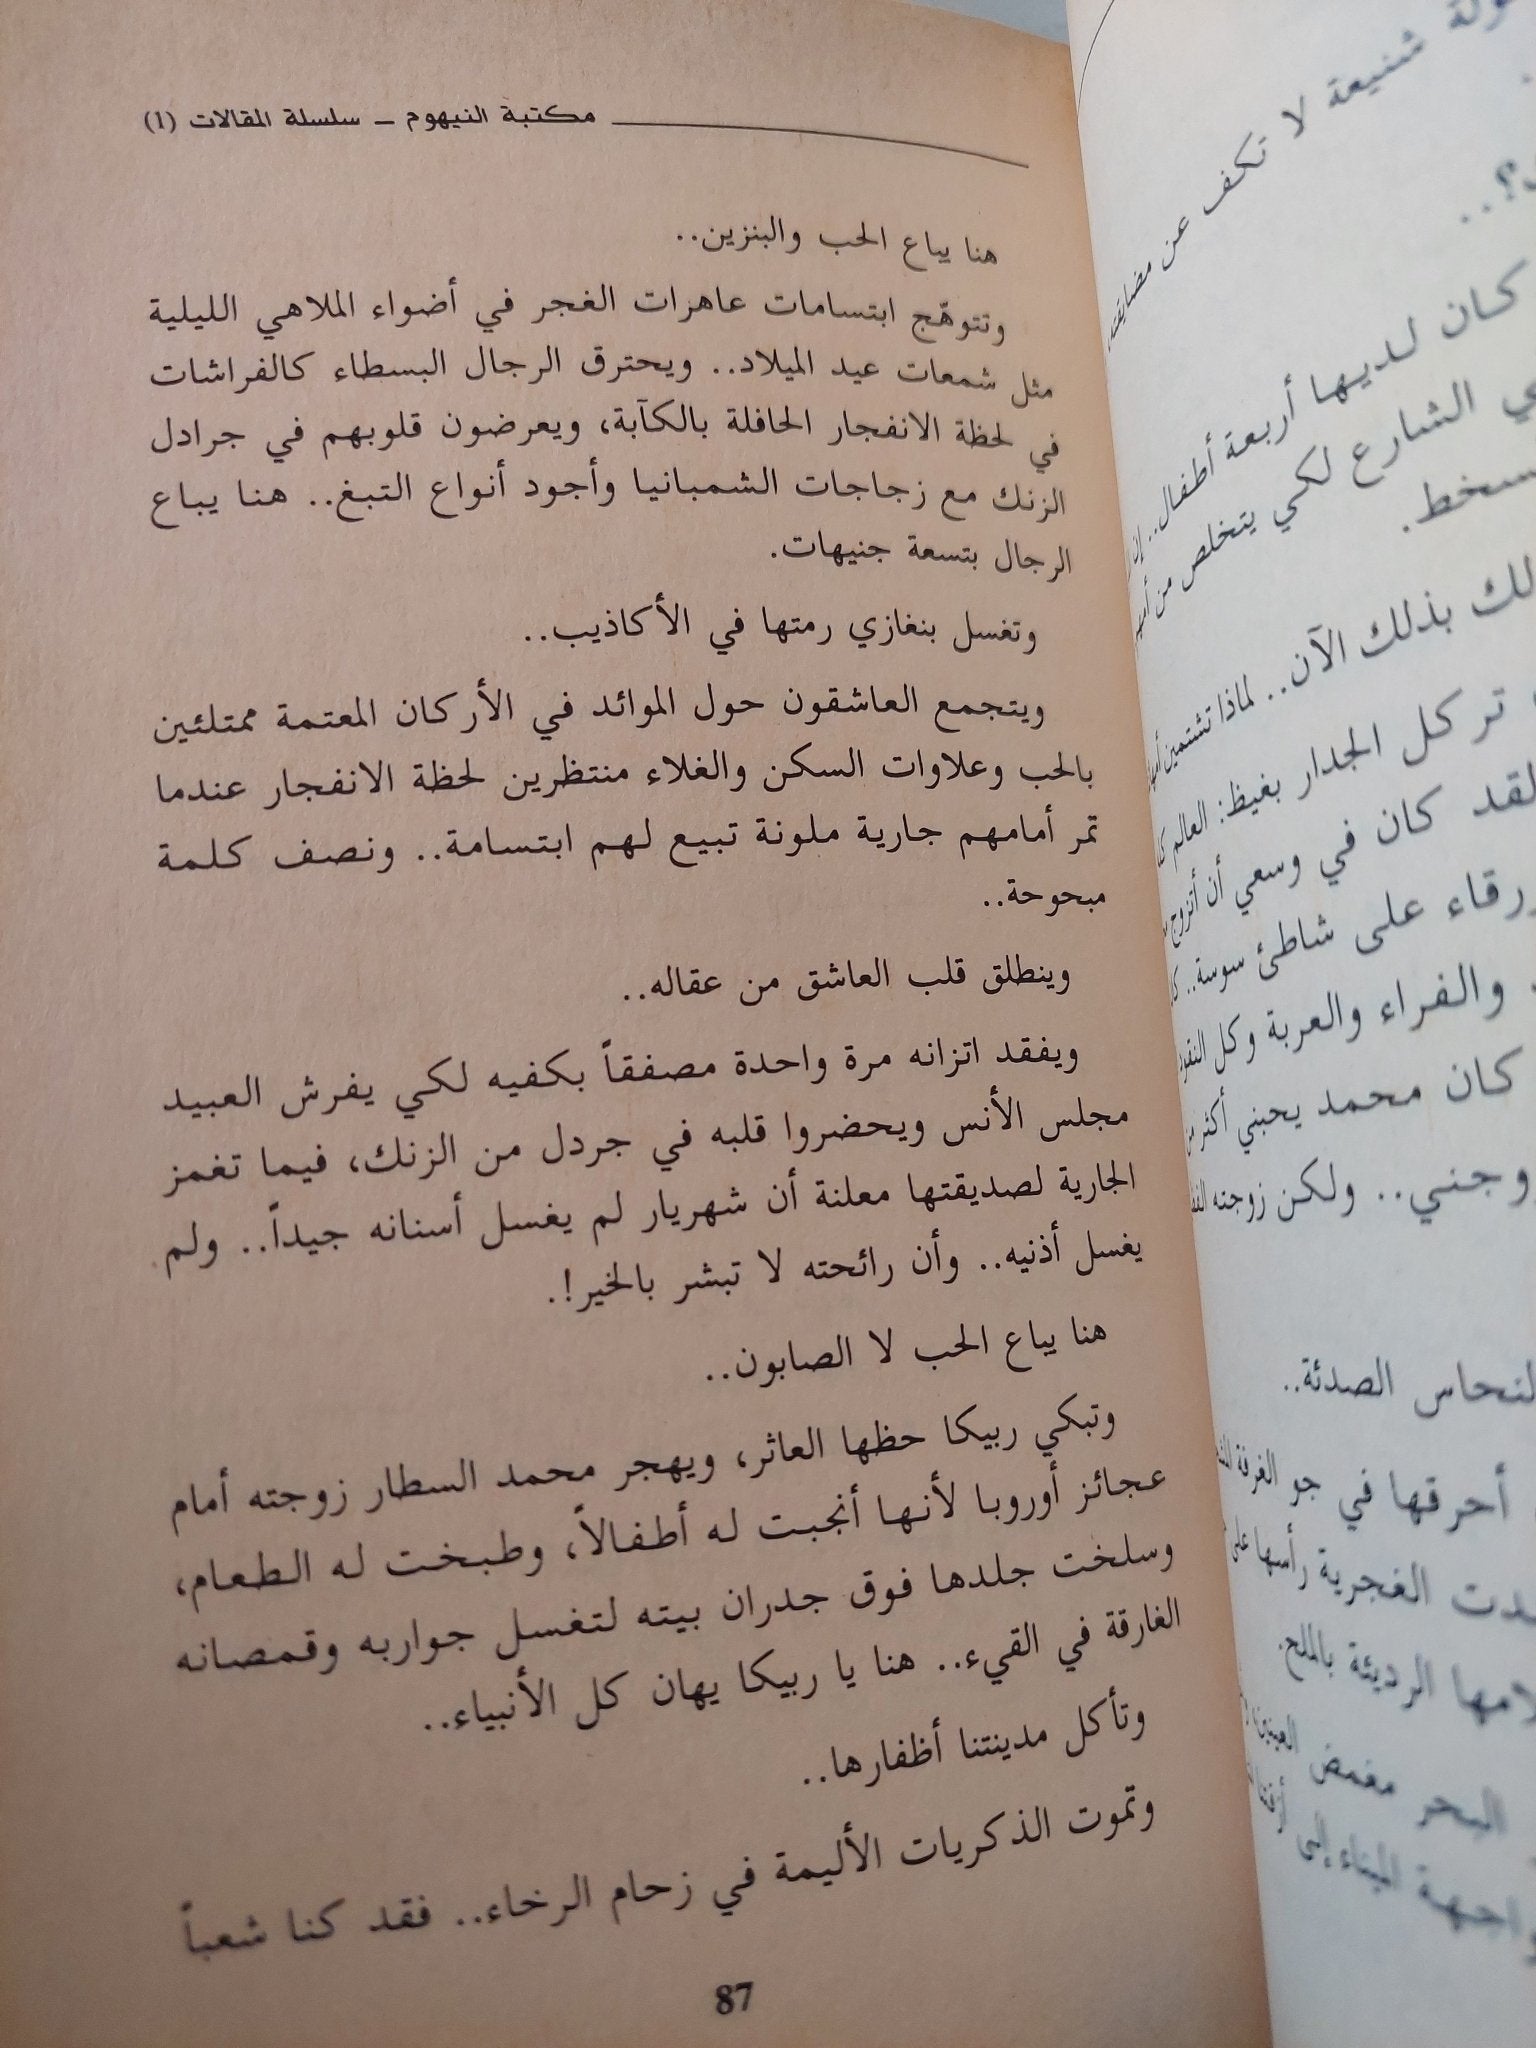 مكتبة النيهوم – سلسلة المقالات (1)
هنا يباع الحب والبنزين..
وتتوهّج ابتسامات عاهرات الغجر في أضواء الملاهي الليلية
مثل شمعات عيد الميلاد.. ويحترق الرجال البسطاء كالفراشات
في لحظة الانفجار الحافلة بالكآبة، ويعرضون قلوبهم في جرادل
الزنك مع زجاجات الشمبانيا وأجود أنواع التبغ.. هنا يباع
الرجال بتسعة جنيهات.
وتغسل بنغازي رمتها في الأكاذيب..
ويتجمع العاشقون حول الموائد في الأركان المعتمة ممتلئين
بالحب وعلاوات السكن والغلاء منتظرين لحظة الانفجار عندما
تمر أمامهم جارية ملونة تبيع لهم ابتسامة.. ونصف كلمة
مبحوحة..
وينطلق قلب العاشق من عقاله..
ويفقد اتزانه مرة واحدة مصفقاً بكفيه لكي يفرش العبيد
مجلس الأنس ويحضروا قلبه في جردل من الزنك، فيما تغمز
الجارية لصديقتها معلنة أن شهريار لم يغسل أسنانه جيداً.. ولم
يغسل أذنيه.. وأن رائحته لا تبشر بالخير!.
هنا يباع الحب لا الصابون..
وتبكي ربيكا حظها العاثر، ويهجر محمد السطار زوجته أمام
عجائز أوروبا لأنها أنجبت له أطفالاً، وطبخت له الطعام،
وسلخت جلدها فوق جدران بيته لتغسل جواربه وقمصانه
الغارقة في القيء.. هنا يا ربيكا يهان كل الأنبياء..
وتأكل مدينتنا أظفارها..
وتموت الذكريات الأليمة في زحام الرخاء.. فقد كنا شعباً
87
شنيعة لا تكف عن مضايقته
كان لديها أربعة أطفال.. إن
الشارع لكي يتخلص من
بذلك الآن.. لماذا تشتمين
تركل الجدار بغيظ: العالم
لقد كان في وسعي أن أتزوج
على شاطئ سوسة..
والفراء والعربة وكل النقود
كان محمد يحبني أكثر من
ولكن زوجته
النحاس الصدئة..
أحرقها في جو الغرفة
الغجرية رأسها على
الرديئة بالملح.
البحر مغمض العينين
الميناء إلى